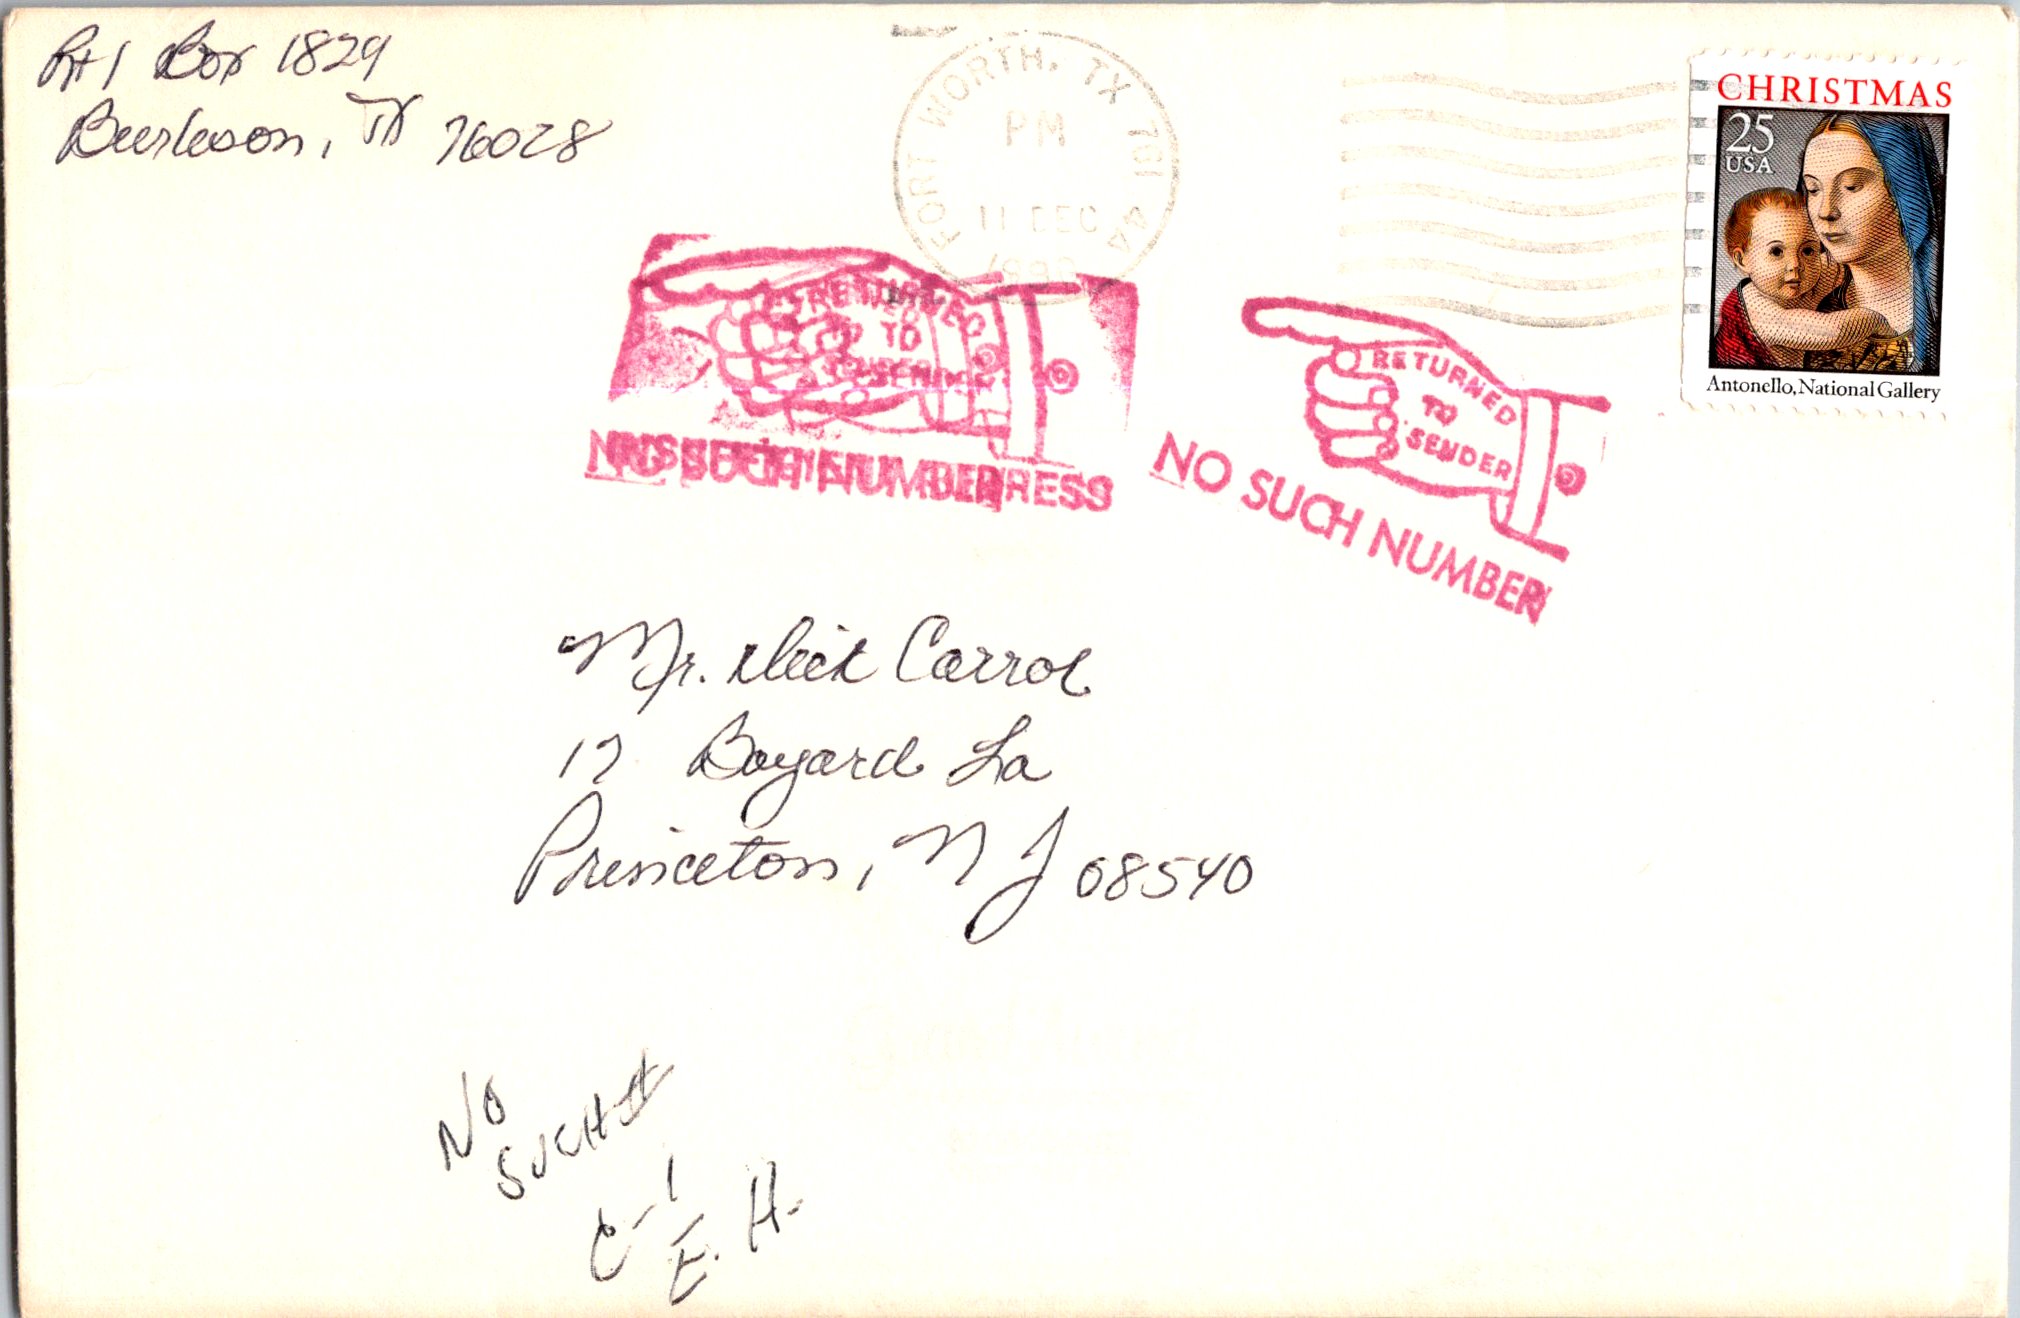 Rt 1 Box 1829
Burleson, TX 76028
FORT WORTH, TX 761 44
PM
11 DEC
CHRISTMAS
25
USA
Antonello, National Gallery
RETURNED
TO
SENDER
NO SUCH NUMBER
RETURNED
TO
SENDER
NO SUCH NUMBER
Mr. Dick Carrol
17 Bayard La
Princeton, NJ 08540
NO
SUCH #
C-1
E. H.